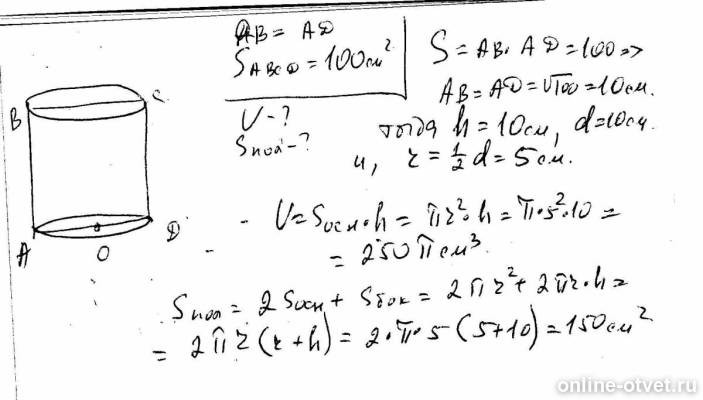 AB = AD
S ABCD = 100 см²
V - ?
Sпол - ?
S = AB · AD = 100 =>
AB = AD = √100 = 10 см.
тогда h = 10 см, d = 10 см.
и, r = ½ d = 5 см.
B
C
A
O
D
- V = Sосн · h = πr² · h = π · 5² · 10 =
= 250 π см³.
Sпол = 2 Sосн + Sбок = 2πr² + 2πr · h =
= 2πr (r + h) = 2 · π · 5 (5 + 10) = 150 см²
online-otvet.ru